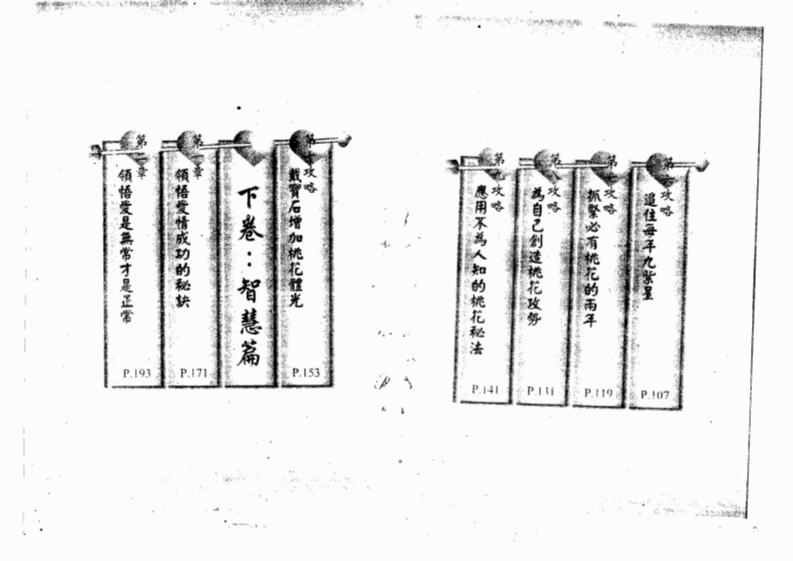 第六攻略
追住每年九紫星
P.107
第七攻略
抓緊必有桃花的兩年
P.119
第八攻略
為自己創造桃花攻勢
P.131
第九攻略
應用不為人知的桃花秘法
P.141
第十攻略
戴寶石增加桃花體光
P.153
下卷：智慧篇
第一章
領悟愛情成功的秘訣
P.171
第二章
領悟愛是無常才是正常
P.193